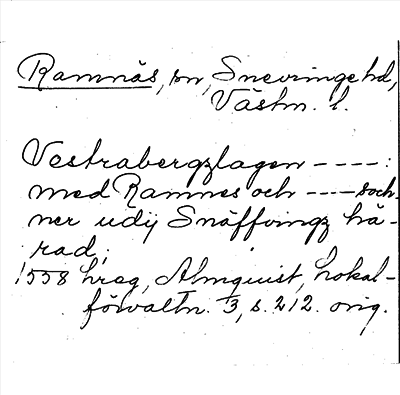 Ramnäs, sn, Snevringe hd,
Västm. l.
Vestrabergzlagen ----:
med Ramnes och ---- soch-
ner udij Snäffvingz hä-
rad;
1558 hreg, Almquist, Lokal-
förvaltn. I 3, s. 212. orig.